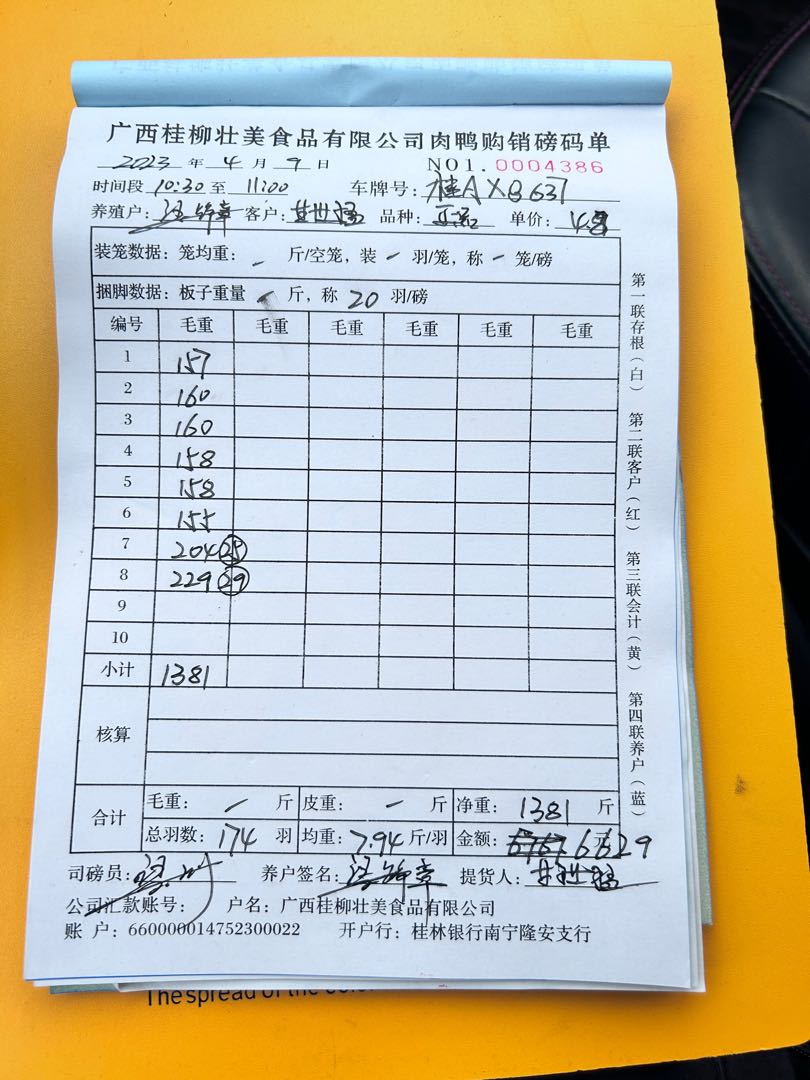 广西桂柳壮美食品有限公司肉鸭购销磅码单
2023 年 4 月 9 日 NO1. 0004386
时间段 10:30 至 11:00 车牌号: 桂AXB637
养殖户: 客户: 品种: 单价: 4.8
装笼数据: 笼均重: - 斤/空笼, 装 - 羽/笼, 称 - 笼/磅
捆脚数据: 板子重量 - 斤, 称 20 羽/磅
编号 毛重 毛重 毛重 毛重 毛重 毛重
1 157
2 160
3 160
4 158
5 158
6 155
7 204 25
8 229 29
9
10
小计 1381
核算
合计 毛重: - 斤 皮重: - 斤 净重: 1381 斤
总羽数: 174 羽 均重: 7.94 斤/羽 金额: 6629 元
司磅员: 养户签名: 提货人:
公司汇款账号: 户名: 广西桂柳壮美食品有限公司
账 户: 660000014752300022 开户行: 桂林银行南宁隆安支行
第一联存根(白) 第二联客户(红) 第三联会计(黄) 第四联养户(蓝)
The spread of the